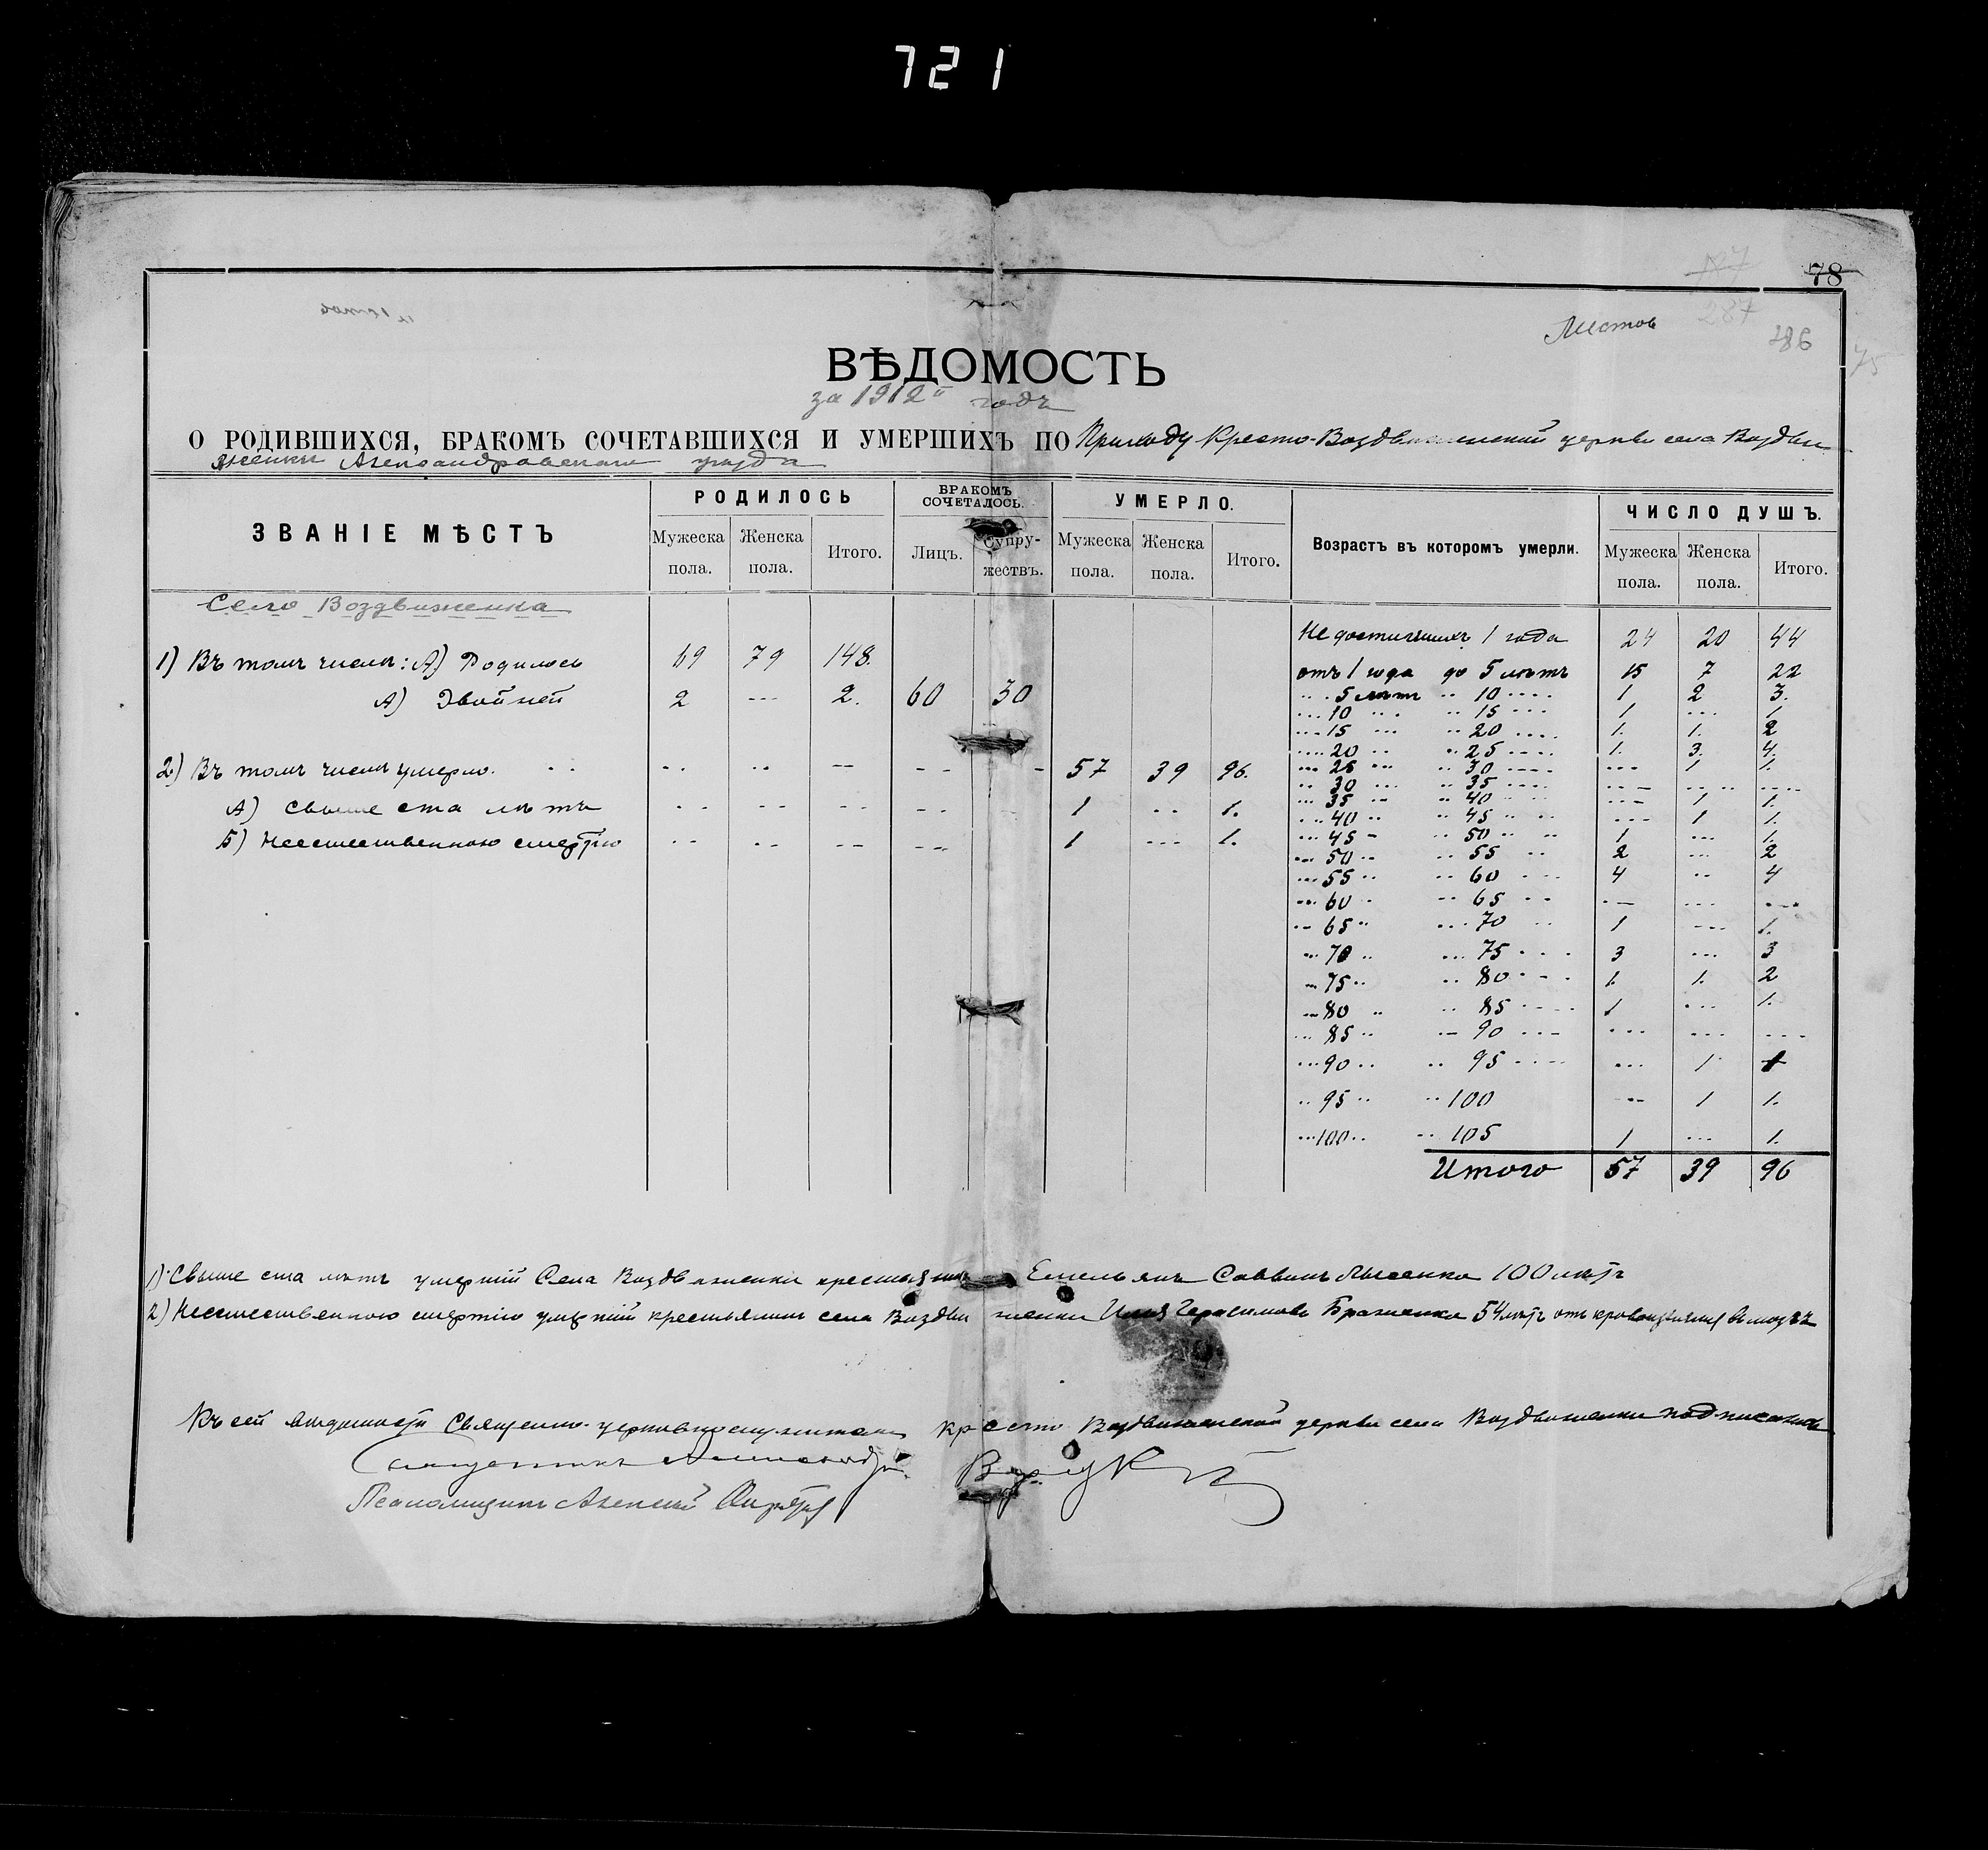 721
78
287
286
75
Листов
ВѢДОМОСТЬ
за 1912й годъ
О РОДИВШИХСЯ, БРАКОМЪ СОЧЕТАВШИХСЯ И УМЕРШИХЪ ПО Приходу Кресто-Воздвиженской церкви села Воздви
женки Александровскаго уѣзда
ЗВАНІЕ МѢСТЪ РОДИЛОСЬ БРАКОМЪ СОЧЕТАЛОСЬ. УМЕРЛО. Возрастъ въ которомъ умерли. ЧИСЛО ДУШЪ.
Мужеска пола. Женска пола. Итого. Лицъ. Супружествъ. Мужеска пола. Женска пола. Итого. Мужеска пола. Женска пола. Итого.
Село Воздвиженка
Не достигшихъ 1 года 24 20 44
1) Въ томъ числѣ: А) Родилось 69 79 148.
отъ 1 года до 5 лѣтъ 15 7 22
А) Двойней 2 --- 2. 60 30
5 лѣтъ 10 1 2 3.
10 15 1 --- 1
15 20 1. 1. 2
20 25 1. 3. 4.
2) Въ томъ числѣ умерло. 57 39 96.
25 30 --- 1 1.
30 35 --- --- ---
35 40 --- 1 1.
А) Свыше ста лѣтъ 1 -- 1.
40 45 --- 1 1.
45 50 1 --- 1.
Б) Неестественною смертію 1 --- 1.
50 55 2 --- 2
55 60 4 -- 4
60 65 -- --- ---
65 70 1 --- 1.
70 75 3 --- 3
75 80 1. 1. 2
80 85 1 --- 1.
85 90 --- --- ---
90 95 --- 1 1
95 100 --- 1 1.
100 105 1 --- 1.
Итого 57 39 96
1) Свыше ста лѣтъ умершій Села Воздвиженки крестьянинъ Емельянъ Саввинъ Лысенко 100 лѣтъ
2) Неестественною смертію умершій крестьянинъ села Воздвиженки Илья Герасимовъ Браженко 54 лѣтъ отъ кровоизліянія въ мозгъ
Къ сей вѣдомости Священно-церковнослужители Кресто Воздвиженской церкви села Воздвиженки подписались
Священникъ Александръ
Псаломщикъ Алексій